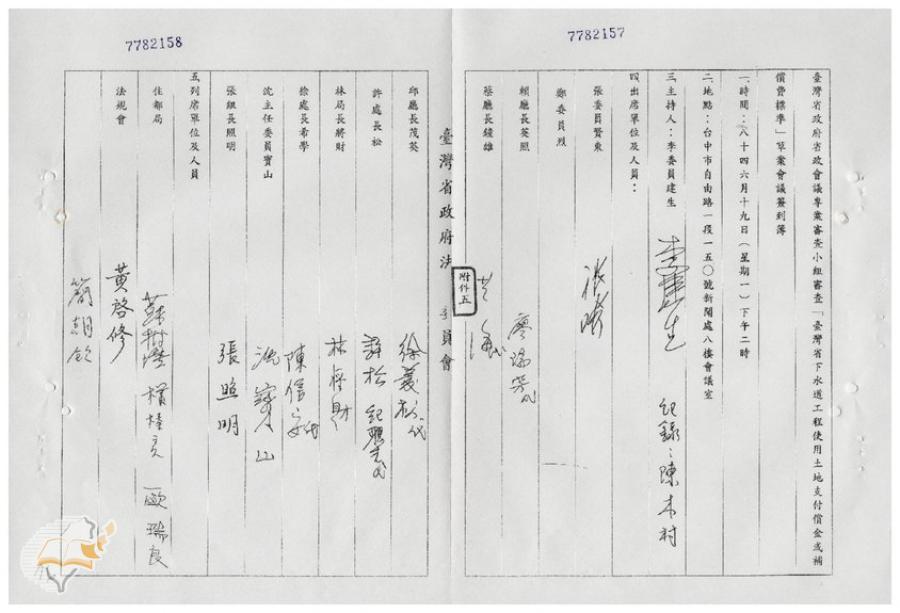 7782157
臺灣省政府省政會議專案審查小組審查「臺灣省下水道工程使用土地支付償金或補
償費標準」草案會議簽到簿
一、時間：八十四六月十九日（星期一）下午二時
二、地點：台中市自由路一段一五〇號新聞處八樓會議室
三、主持人：李委員建生
紀錄：陳木村
四、出席單位及人員：
張委員賢東
鄭委員烈
賴廳長英照
張廳長鏡雄
附件五
臺灣省政府法 委員會
7782158
邱廳長茂英
許處長松
許松
林局長將財
徐處長希學
沈主任委員寶山
沈寶山
張組長照明
張照明
五、列席單位及人員
住都局
歐瑞良
法規會
黃啓修
簡朝欽